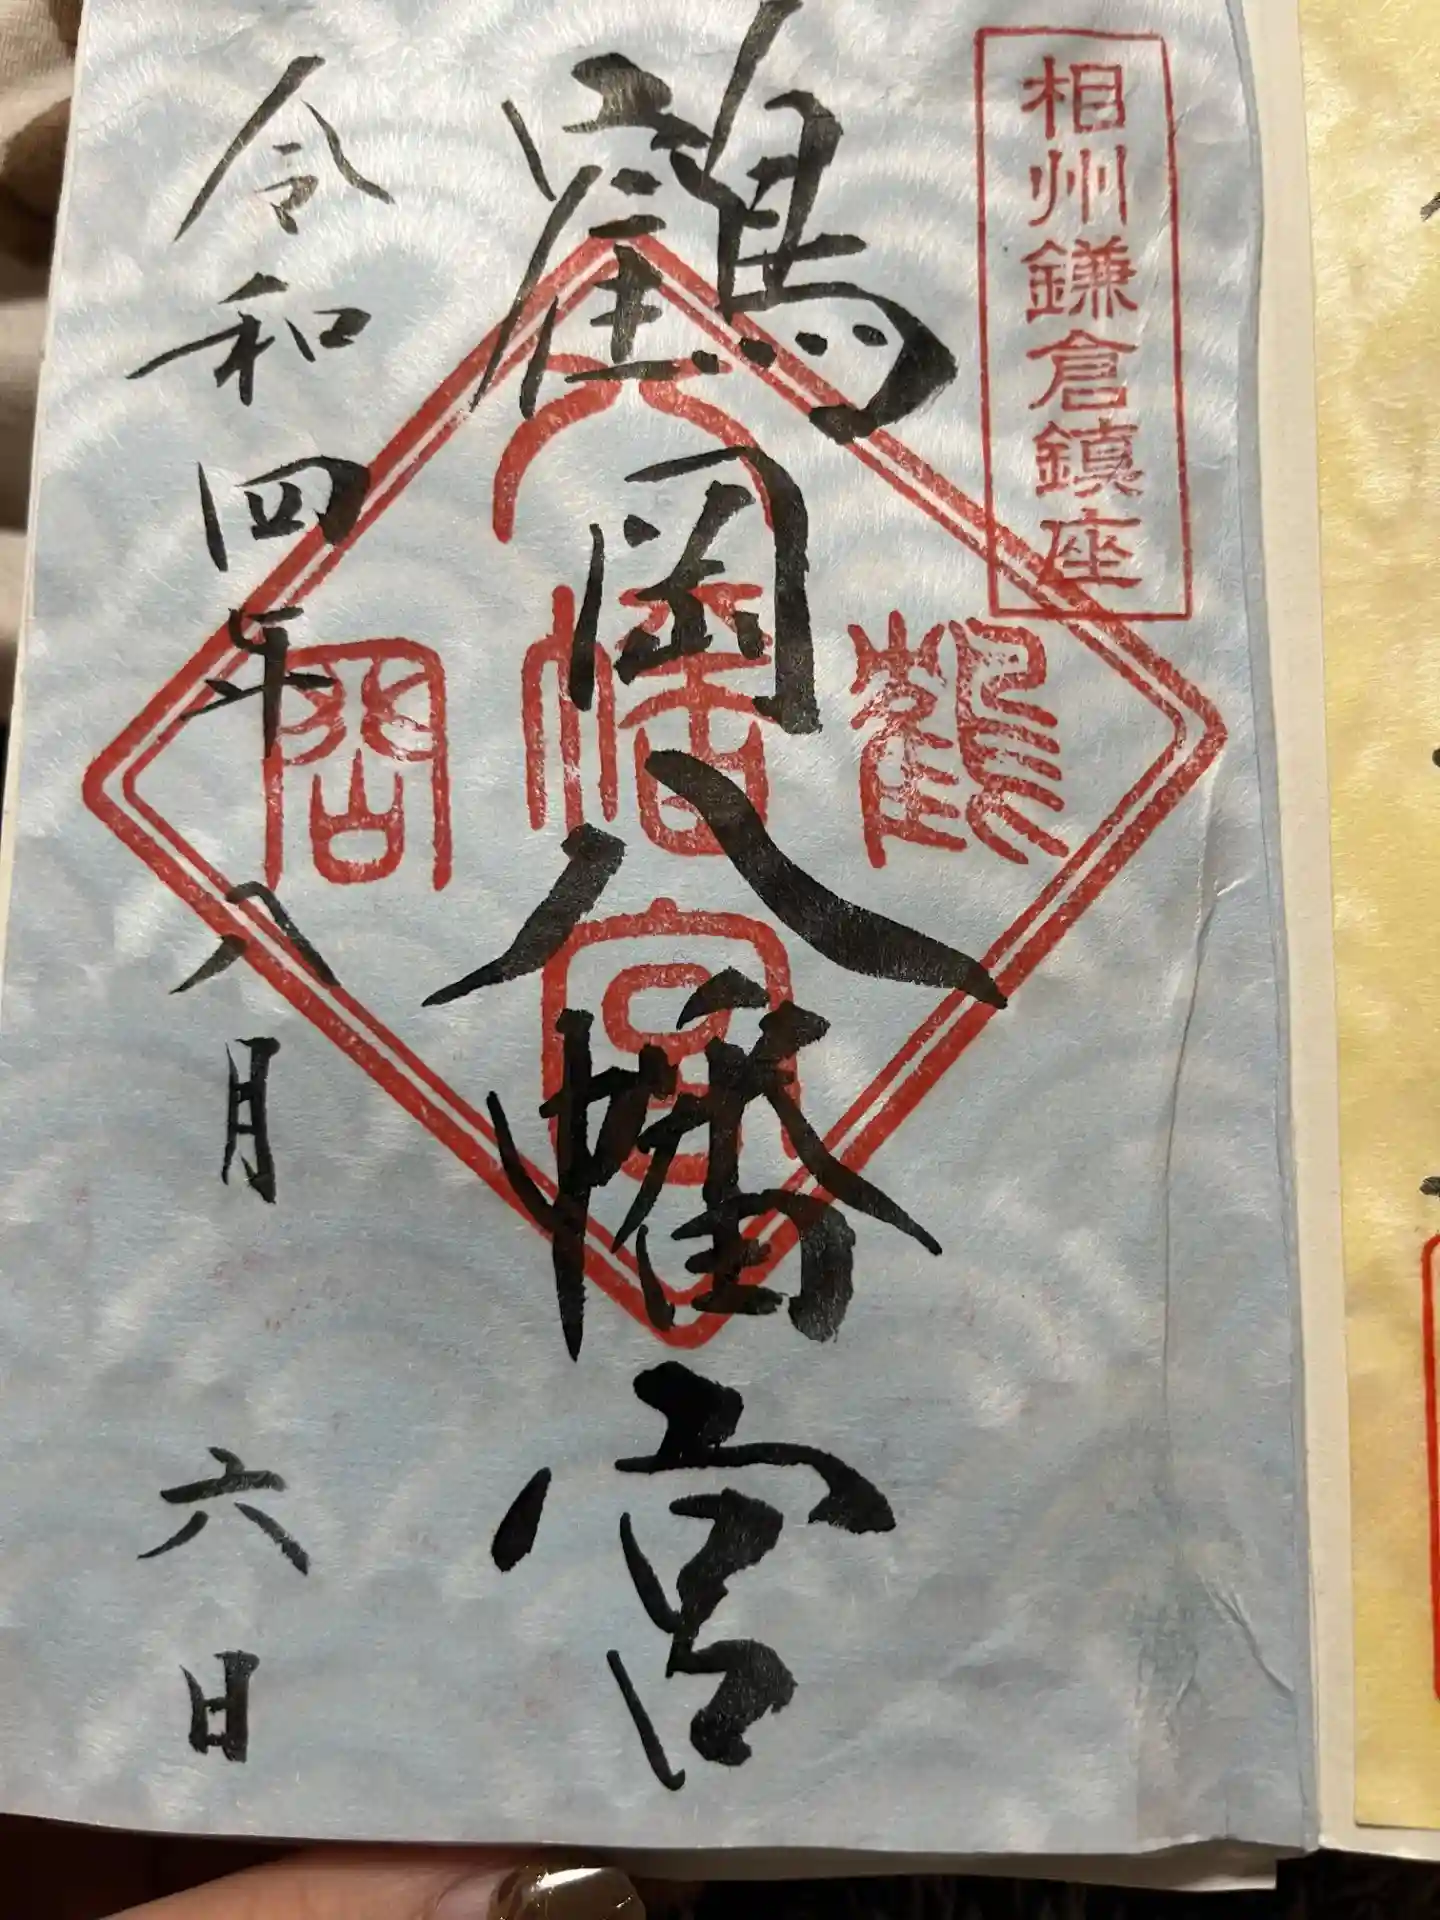 相州鎌倉鎮座
鶴岡八幡宮
八幡宮
鶴
岡
令和四年八月六日